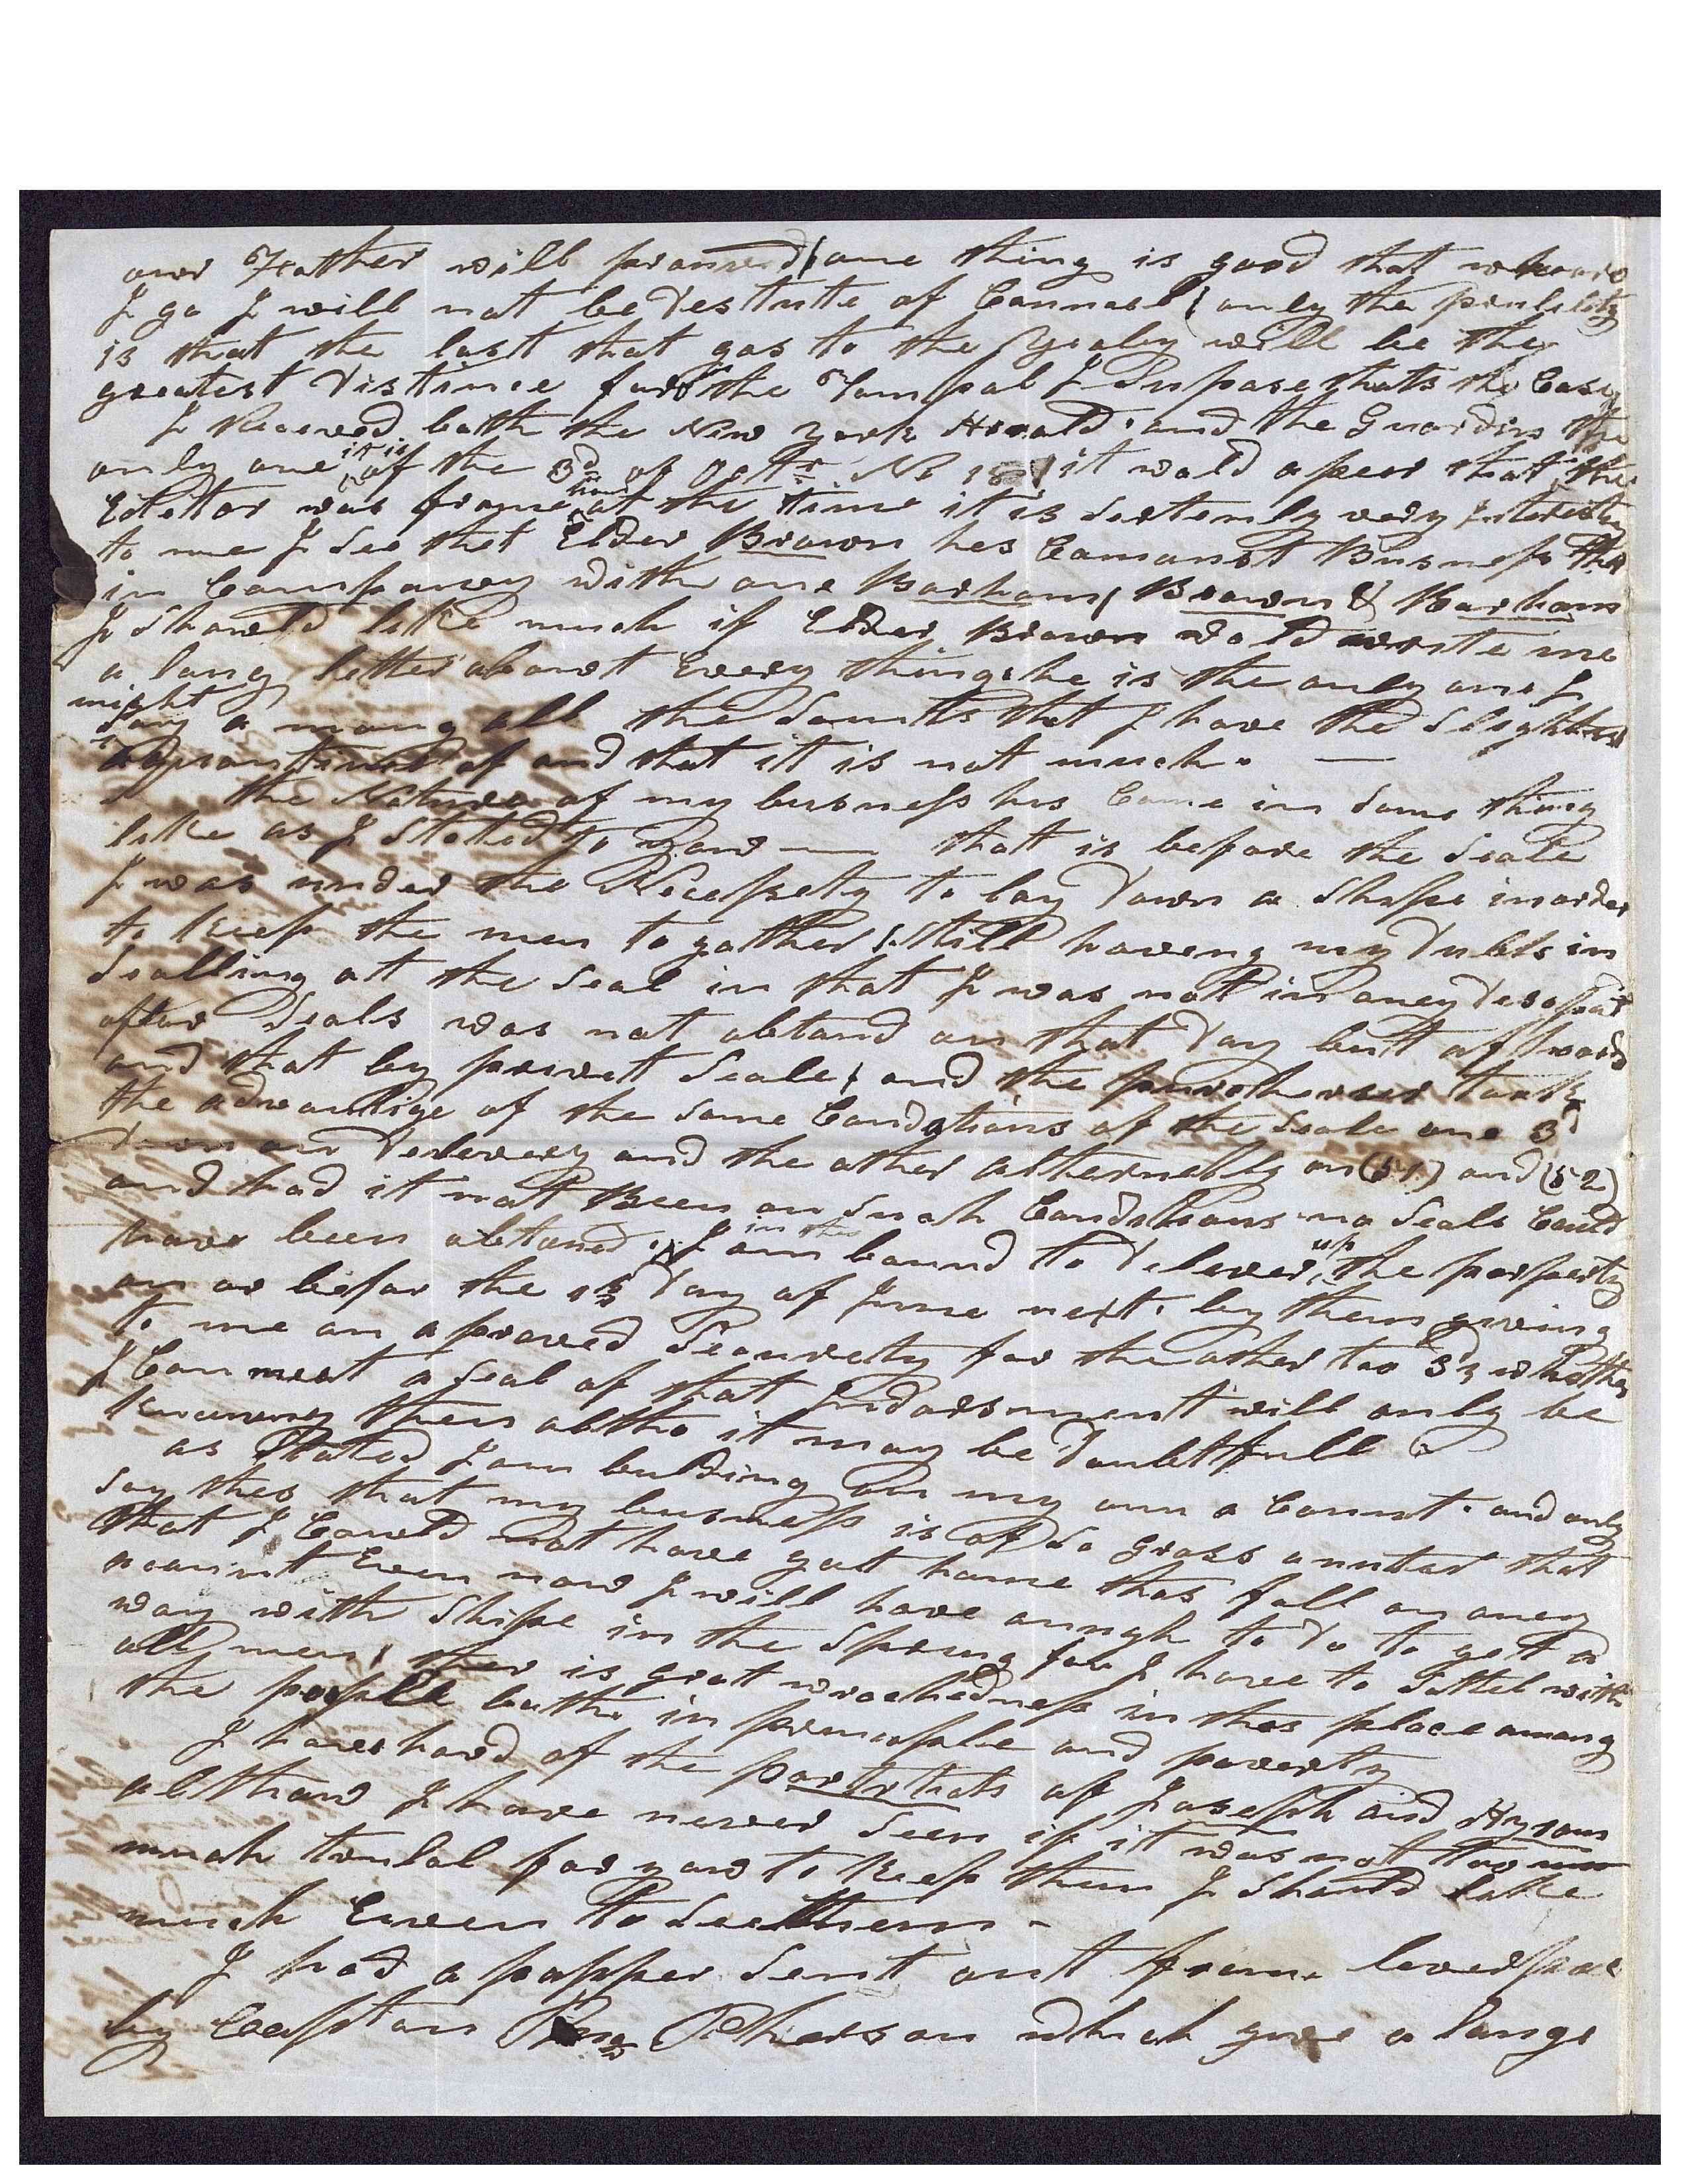 our Father will provied / one thing is good that wheare
I go I will not be Destute of Councel / only the
is that the last that gos to the will be the
greatest Distince for the Tempal I Supose thats the Case
I Receved both the New York Herald and the Guardin the
only one it is of the 3d of Octr No 18 / it wold apear that the
Editor was from home at the time it is Sertenly very Intresting
to me I See that Elder Brown hes Comanst Busness
in Company with one Barham / Brown & Barham
I Shoueld like much if Elder Brown wold write me
a long letter about Every thing he is the only one I
might Say a mong all the Saints that I have the Slightest
aquantince of and that it is not much. —
the Nature of my busness his Come in Some thing
like as I Stated to you — that is before the Seale
I was under the Nessety to lay Down a Shipe in order
to Keep the men to gather / Still haveng my Dubts in
Sealling at the Seal in that I was not in aney Desapoint
after Seals was not obtand on that Day but afterwards
and that by privet Seale / and the purcheser took
the advantige of the Same Condations of the Seale one 3d
Down on Delevery and the other alternetly on (51) and (52)
and had it not Been on Such Condations no Seals Could
have been obtaned. I am in this bound to Delever up the property
on or befor the 15 Day of June next. by them giveing
to me an aproved Securety for the other too 3ds whether
I Can meat a Seal of that Indorsment will only be
knowen then altho it may be Doubtfull
as Stated I am bulding on my own a Count. and only
Say this that my busness is of So gross a nuter that
that I Could not have got home this fall on aney
acount Even now I will have anugh to Do to get a
way with Shipe in the Spring for I have to Settel with
all men / ther is grat wrechedness in this place among
the people both in princaple and poverty
I have hard of the portrits of Joseph and Hyrum
althow I have never Seen if it was not too
much trubal for you to Keep them I Should like
much Even to See them -
I had a papper Sent out from leverpool
by Captan Pherson which gave a longe